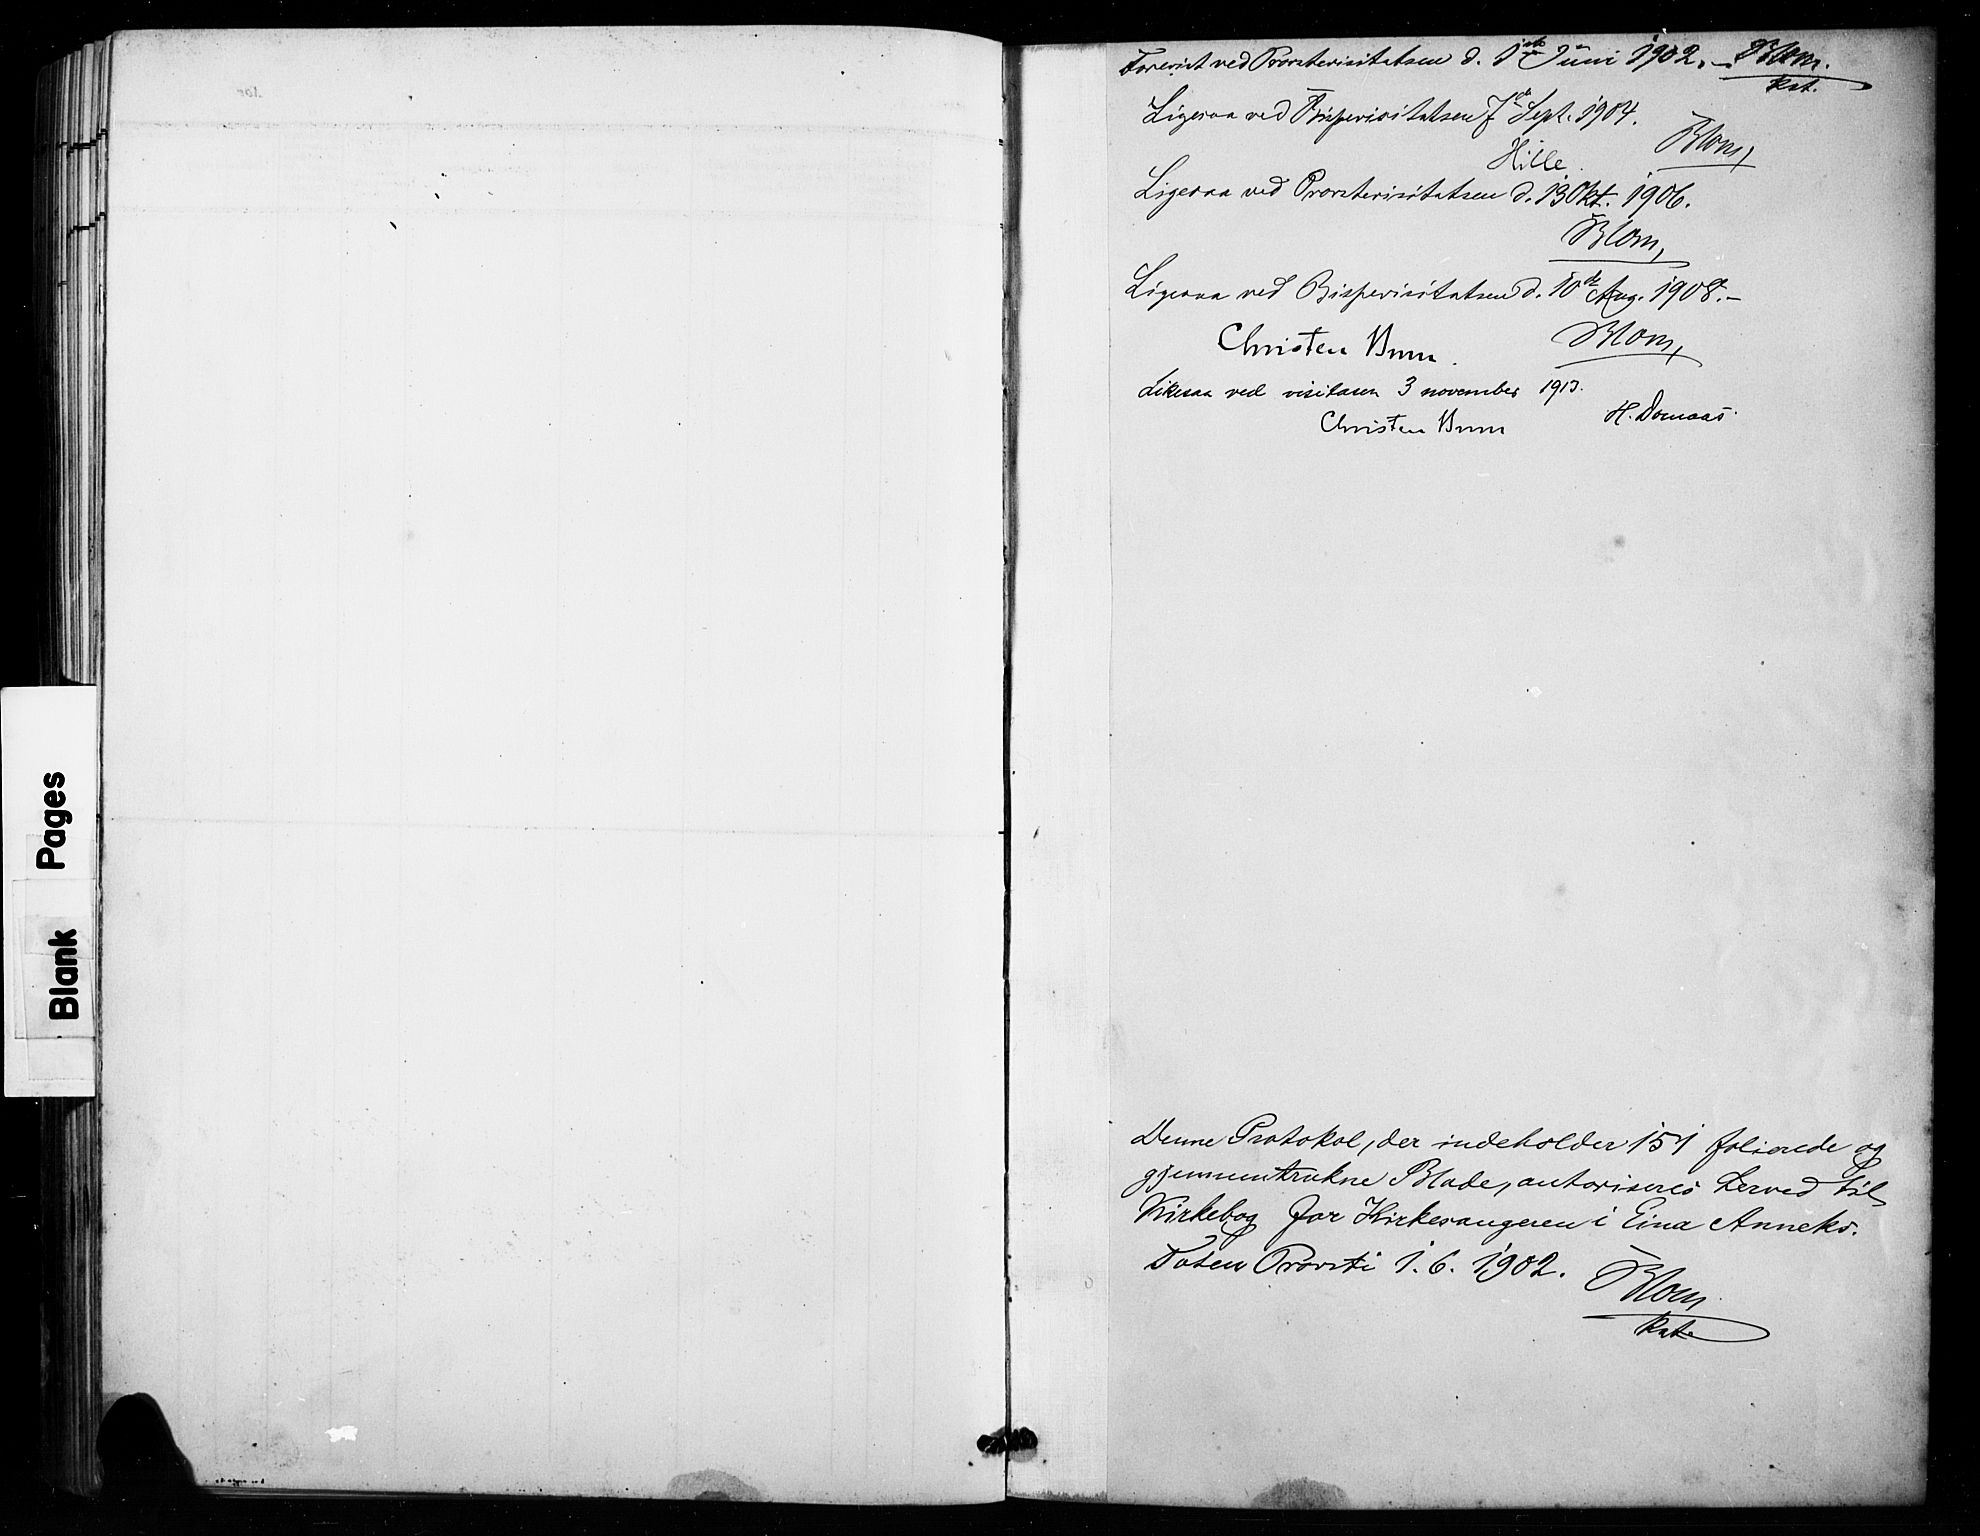 Forevist ved Provstevisitatsen d. 1ste Juni 1902. – Blom.
kst.
Ligesaa ved Bispevisitatsen 7de Sept. 1904.
Hille. Blom,
Ligesaa ved Provstevisitatsen d. 13 Okt. 1906.
Blom,
Ligesaa ved Bispevisitatsen d. 10de Aug. 1908. –
Christen Brun. Blom,
Likesaa ved visitasen 3 november 1913.
Christen Brun H. Domaas.
Blank Pages
Denne Protokol, der indeholder 151 folierede og
gjennemtrukne Blade, autoriseres herved til
Kirkebog for Kirkesangeren i Eina Anneks.
Toten Provsti 1. 6. 1902.
Blom
kst.